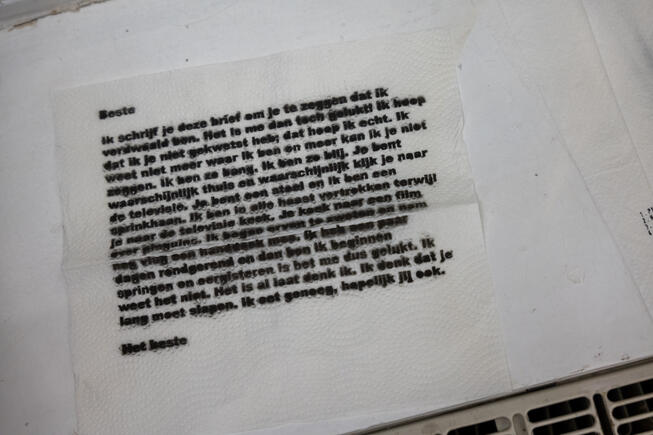 Beste
Ik schrijf je deze brief om je te zeggen dat ik
verdwaald ben. Het is me dan toch gelukt! Ik hoop
dat ik je niet gekwetst heb; dat hoop ik echt. Ik
weet niet meer waar ik ben en meer kan ik je niet
zeggen. Ik ben zo bang. Ik ben zo blij. Je bent
waarschijnlijk thuis en waarschijnlijk kijk je naar
de televisie. Je bent een stoel en ik ben een
sprinkhaan. Ik ben in alle haast vertrokken terwijl
je naar de televisie keek. Je keek naar een film
over pinguins. Ik begon ervan te zweten en nam
nog vlug een handdoek mee. Ik heb een paar
dagen rondgerend en dan ben ik beginnen
springen en eergisteren is het me dus gelukt. Ik
weet het niet. Het is al laat denk ik. Ik denk dat je
lang moet slapen. Ik eet genoeg, hopelijk jij ook.
Het beste